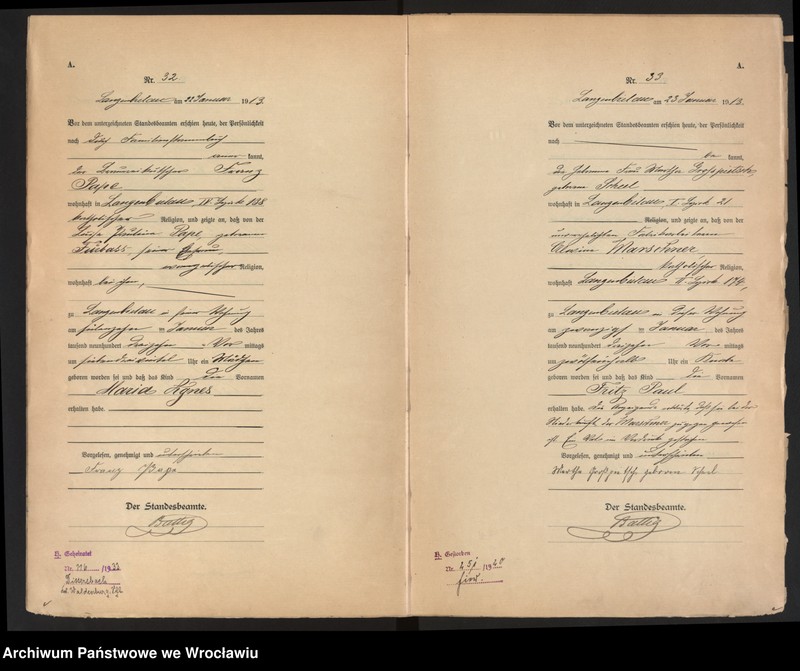 A.
Nr. 32
Langenbielau am 22 Januar 1913.
Vor dem unterzeichneten Standesbeamten erschien heute, der Persönlichkeit
nach Familienstammbuch
anerkannt,
der Franz
Pape
wohnhaft in Langenbielau, IV. Bezirk 138
katholischer Religion, und zeigte an, daß von der
Pape, geborenen
seiner Ehefrau,
evangelischer Religion,
wohnhaft bei ihm,
zu Langenbielau in seiner Wohnung
am siebenzehnten Januar des Jahres
tausend neunhundert dreizehn Vormittags
um Uhr ein Mädchen
geboren worden sei und daß das Kind die Vornamen
Maria Agnes
erhalten habe.
Vorgelesen, genehmigt und unterschrieben
Franz Pape
Der Standesbeamte.
Battig
B. Geheiratet
Nr. 116 /1933
Dittersbach
bei Waldenburg
A.
Nr. 33
Langenbielau am 23 Januar 1913.
Vor dem unterzeichneten Standesbeamten erschien heute, der Persönlichkeit
nach
bekannt,
die Hebamme Frau Martha
geborene Scheel
wohnhaft in Langenbielau, I. Bezirk 21
Religion, und zeigte an, daß von der
unverehelichten Fabrikarbeiterin
Marschner
katholischer Religion,
wohnhaft Langenbielau II. Bezirk 174,
zu Langenbielau in Wohnung
am zwanzigsten Januar des Jahres
tausend neunhundert dreizehn Vormittags
um Uhr ein Knabe
geboren worden sei und daß das Kind die Vornamen
Fritz Paul
erhalten habe. Die Anzeigende erklärte, daß sie bei der
Niederkunft der Marschner zugegen gewesen
sei. Ein Wort im Vordruck gestrichen
Vorgelesen, genehmigt und unterschrieben
Martha geborene Scheel
Der Standesbeamte.
Battig
B. Gestorben
Nr. /1920
hier.
Archiwum Państwowe we Wrocławiu